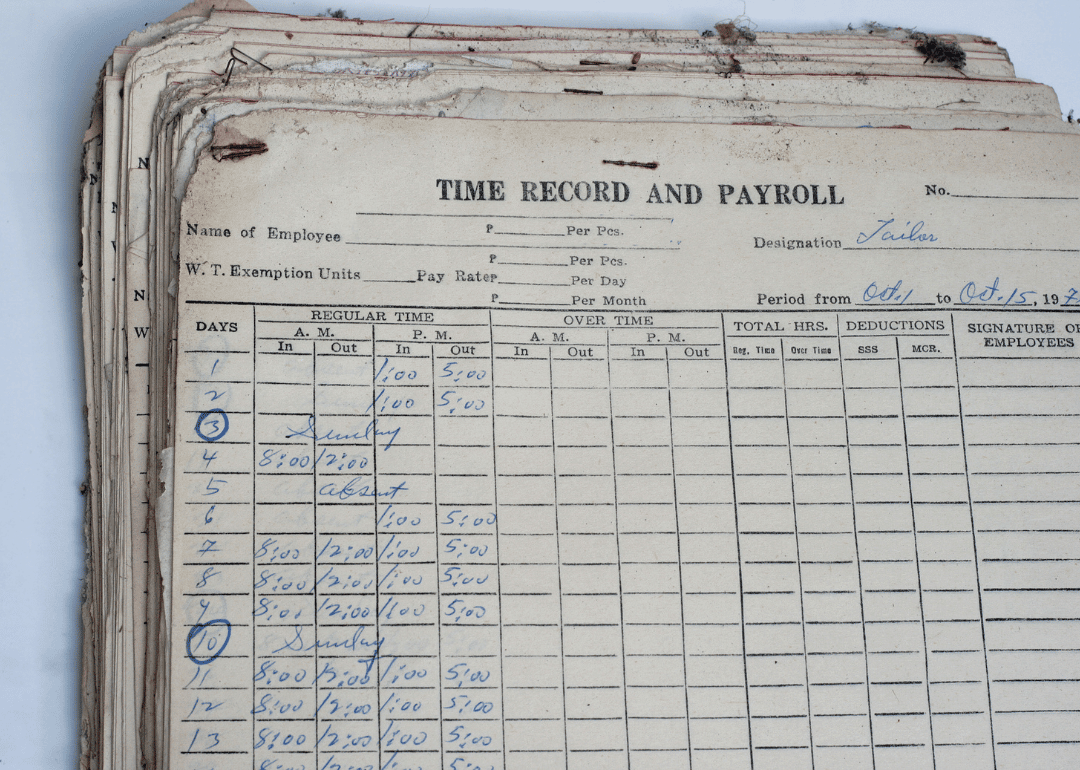 TIME RECORD AND PAYROLL No.
Name of Employee ₱ Per Pcs. Designation Tailor
₱ Per Pcs.
W. T. Exemption Units Pay Rate ₱ Per Day
₱ Per Month Period from Oct. 1 to Oct. 15, 197
DAYS REGULAR TIME OVER TIME TOTAL HRS. DEDUCTIONS SIGNATURE OF EMPLOYEES
A. M. P. M. A. M. P. M.
In Out In Out In Out In Out Reg. Time Over Time SSS MCR.
1 1:00 5:00
2 1:00 5:00
3 Sunday
4 8:00 12:00
5 absent
6 1:00 5:00
7 8:00 12:00 1:00 5:00
8 8:00 12:00 1:00 5:00
9 8:00 12:00 1:00 5:00
10 Sunday
11 8:00 1:00 5:00
12 8:00 12:00 1:00 5:00
13 8:00 12:00 1:00 5:00
8:00 12:00 1:00 5:00
N
N
N
W